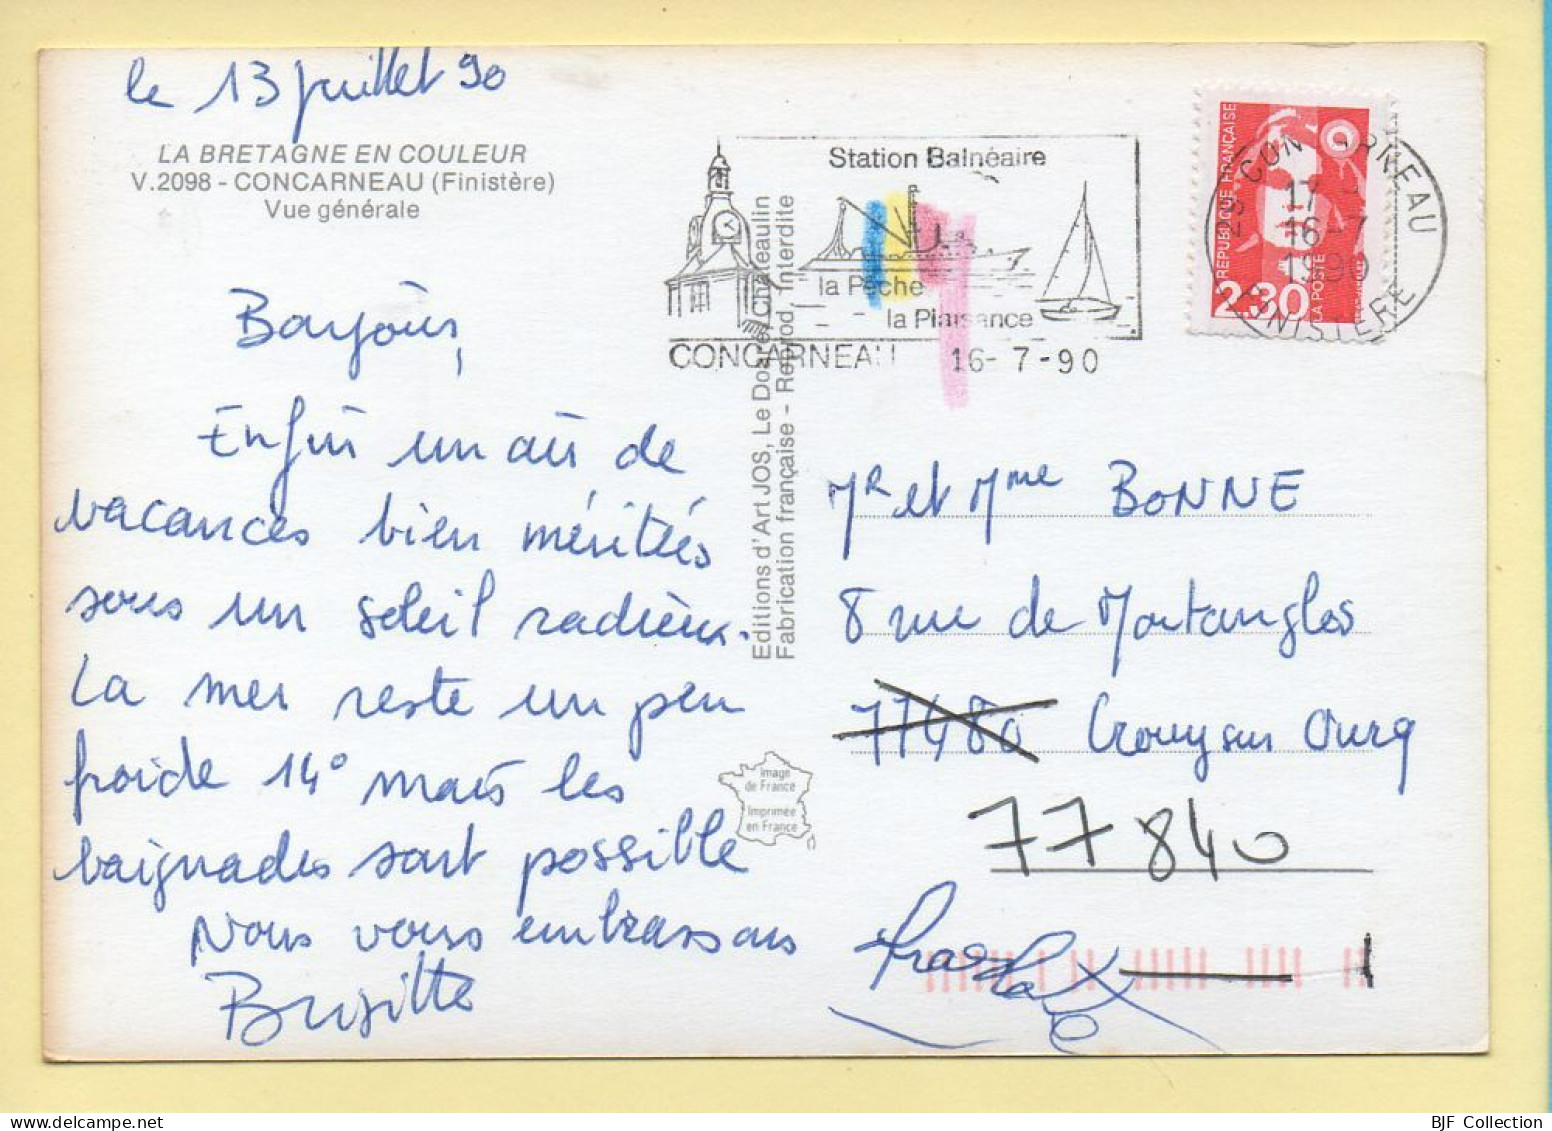 le 13 juillet 90
LA BRETAGNE EN COULEUR
V.2098 - CONCARNEAU (Finistère)
Vue générale
Bonjour,
Enfin un air de
vacances bien méritées
sous un soleil radieux.
La mer reste un peu
froide 14° mais les
baignades sont possible
Nous vous embrassons
Brigitte
Editions d'Art JOS, Le Doaré, Châteaulin
Fabrication française - Reprod. Interdite
Image
de France
Imprimée
en France
Station Balnéaire
la Pêche
la Plaisance
CONCARNEAU 16-7-90
RÉPUBLIQUE FRANÇAISE
2,30
LA POSTE
29 CONCARNEAU
17 H
16-7
1990
FINISTERE
Mr et Mme BONNE
8 rue de Montangles
77480 Crouy sur Ourq
77840
BJF Collection